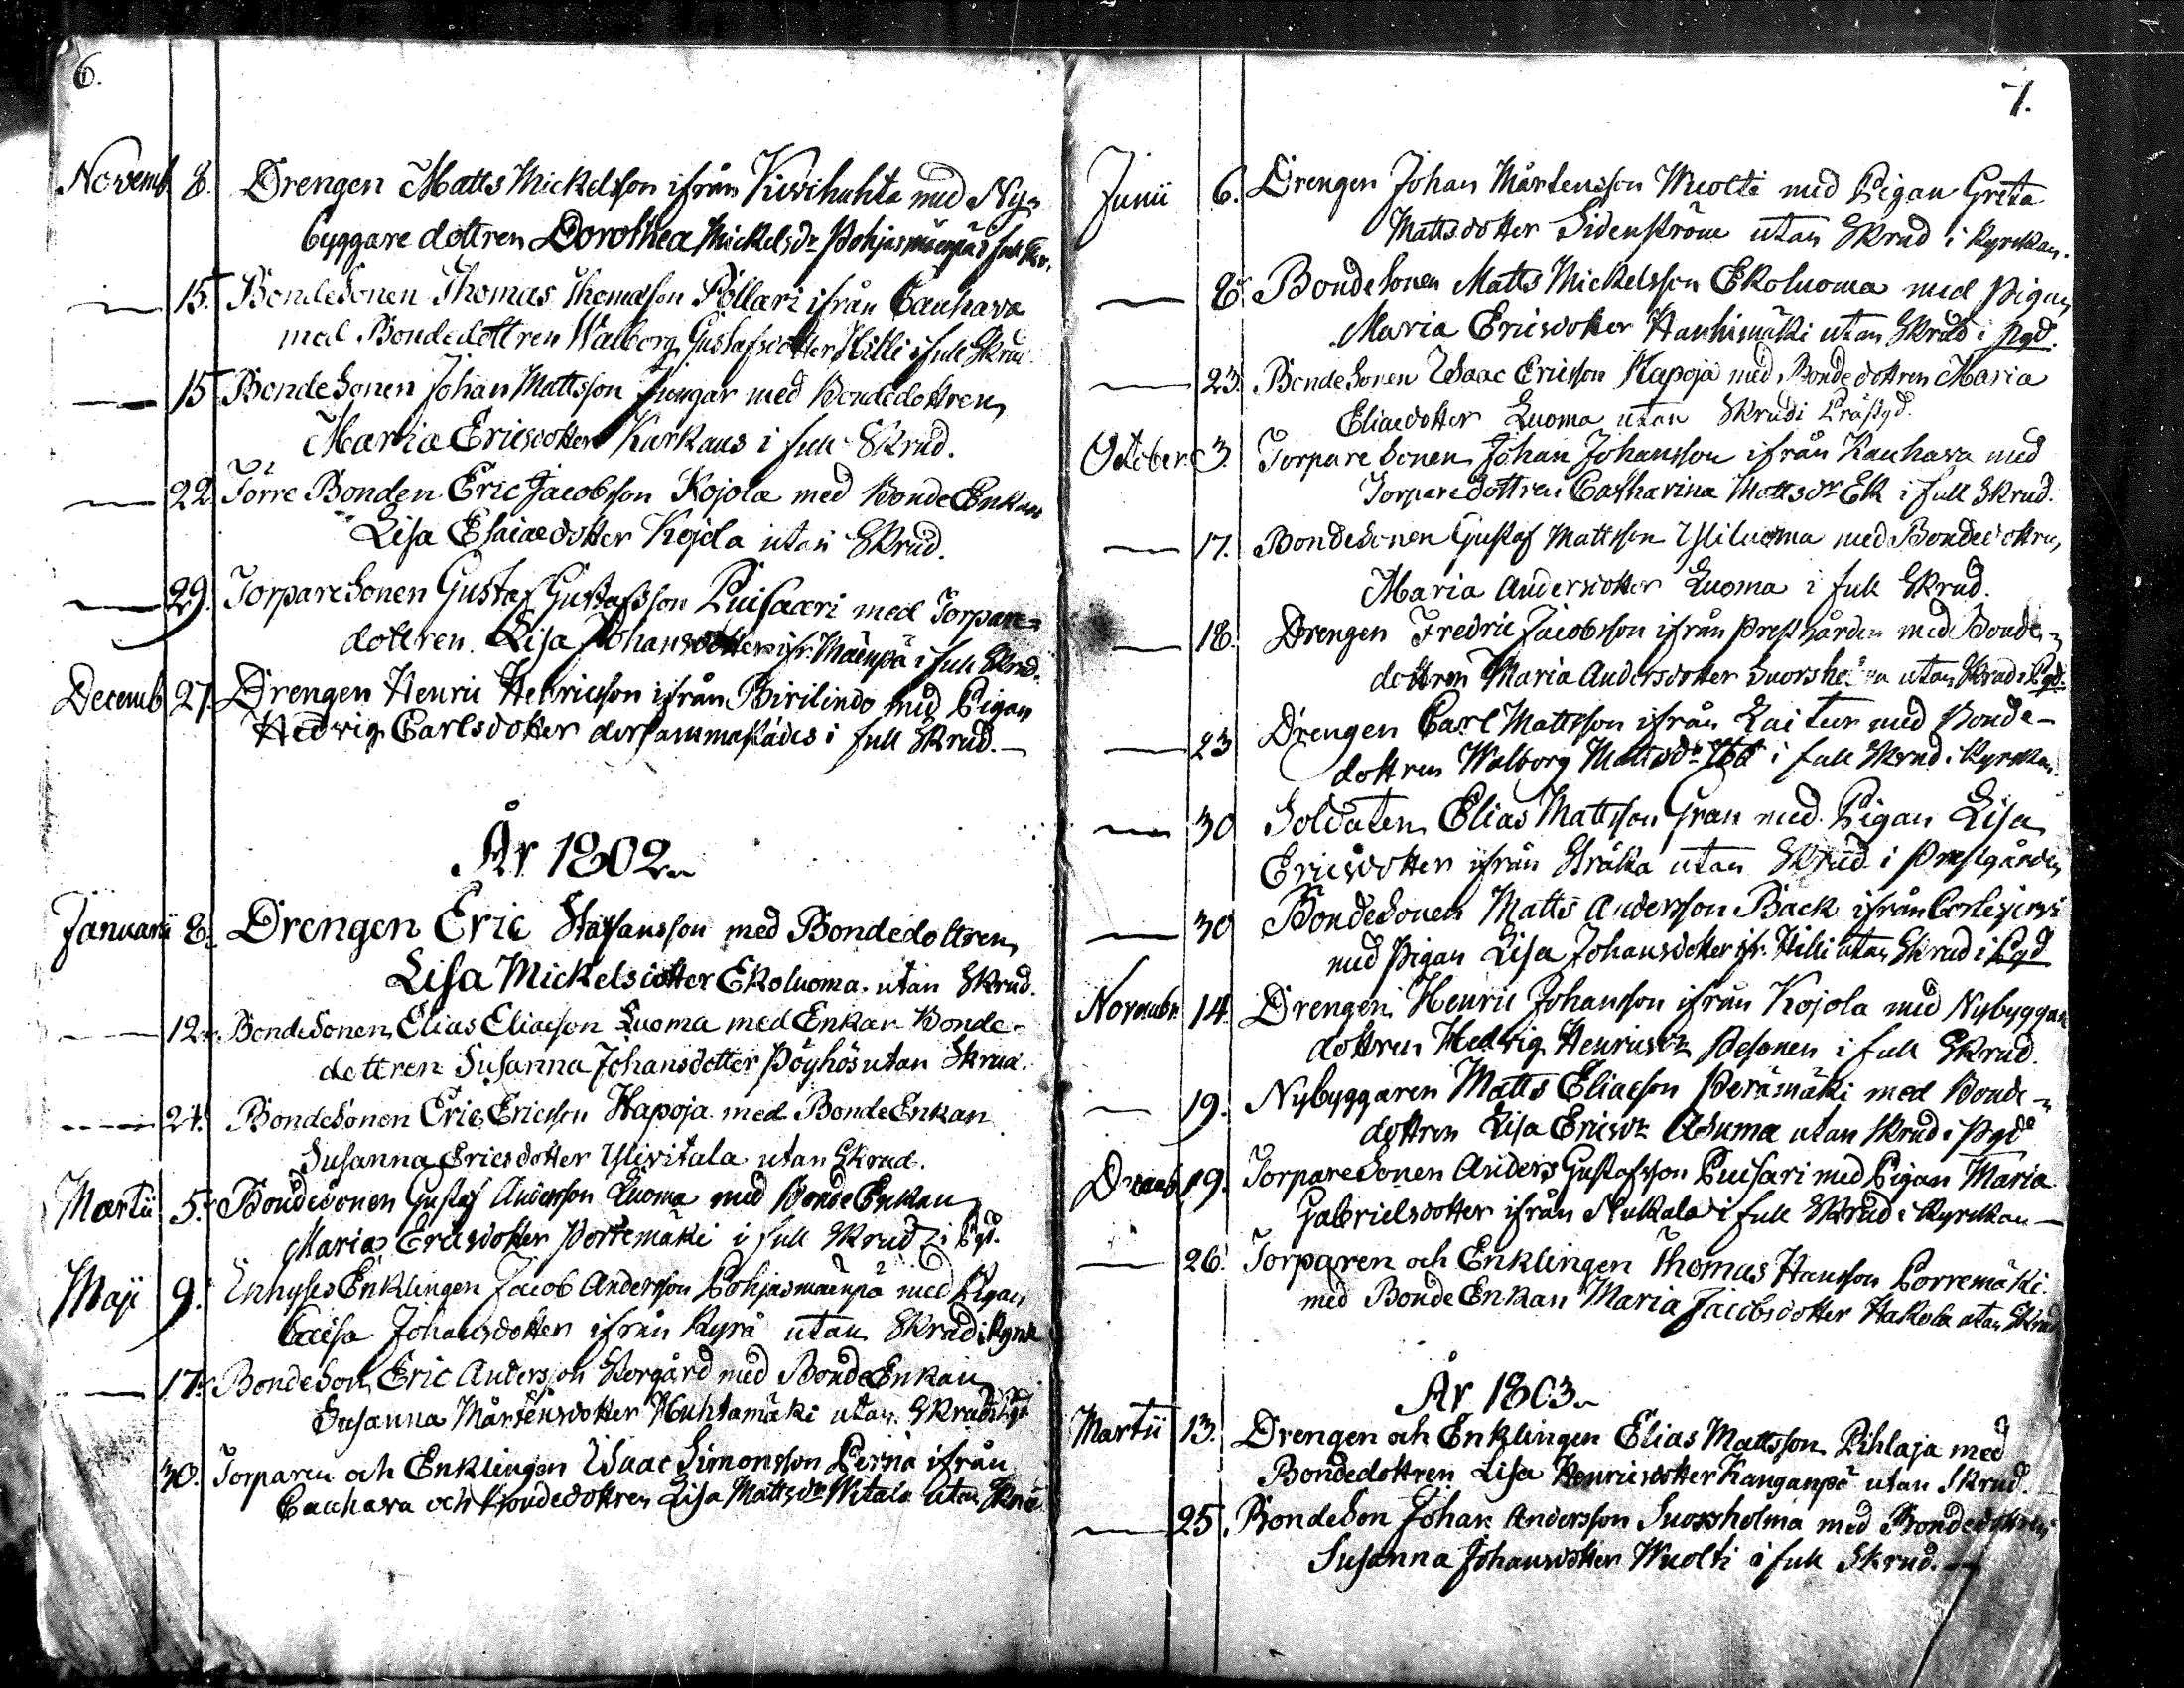 6.
Novemb 8. Drengen Matts Mickelsson ifrån Kiwihuhta med Ny=
byggare dottren Dorothea Mickelsdr Pohjasmäenpä i full Skr.
— 15. Bonde Sonen Thomas Thomasson Pöllari ifrån Cauhava
med Bondedottren Walborg Gustafsdotter Hilli i full Skrud
— 15 Bonde Sonen Johan Mattsson Jungar med Bondedottren
Maria Ericsdotter Karhaus i full Skrud.
— 22 Förre Bonden Eric Jacobsson Kojola med Bonde Enkan
Lisa Esaiaedotter Kojola utan Skrud.
— 29. Torpare Sonen Gustaf Gustafsson Luisaari med Torpare=
dottren Lisa Johansdotter ifr. Mäenpä i full Skrud.
Decemb 27. Drengen Henric Henricsson ifrån Birilindo med Pigan
Hedvig Carlsdotter dersammastädes i full Skrud. —
År 1802.
Januarii 8. Drengen Eric Staffansson med Bondedottren
Lisa Mickelsdotter Ekoluoma utan Skrud.
— 12. Bonde Sonen Elias Eliaeson Luoma med Enkan Bonde-
dottren Susanna Johansdotter Pöyhös utan Skrud.
— 24. Bonde Sonen Eric Ericsson Hapoja med Bonde Enkan
Susanna Ericsdotter Yliwitala utan Skrud.
Martii 5. Bonde Sonen Gustaf Andersson Luoma med Bonde Enkan
Maria Ericsdotter Porremäki i full Skrud i Pgd.
Maji 9. Inhyses Enklingen Jacob Andersson Pohjasmäenpä med Pigan
Caisa Johansdotter ifrån Kyrå utan Skrud i Kyrk
— 17. Bonde Son Eric Andersson Storgård med Bonde Enkan
Susanna Mårtensdotter Huhtamäki utan Skrud i Pgd
30. Torparen och Enklingen Isaac Simonsson Perna ifrån
Cauhava och Bondedottren Lisa Mattsdr Witala utan Skru
7.
Junii 6. Drengen Johan Mårtensson Wuolti med Pigan Greta
Mattsdotter Sidenström utan Skrud i Kyrckan.
— 8. Bonde Sonen Matts Mickelsson Ekoluoma med Pigan
Maria Ericsdotter Hanhimäki utan Skrud i Pgd.
— 23. Bonde Sonen Isaac Ericsson Hapoja med Bonde dottren Maria
Eliaedotter Luoma utan Skrud i Prästgd.
October 3. Torpare Sonen Johan Johansson ifrån Kauhava med
Torparedottren Catharina Mattsdr Ek i full Skrud.
— 17. Bonde Sonen Gustaf Mattsson Yliluoma med Bondedottren
Maria Andersdotter Luoma i full Skrud.
— 18. Drengen Fredric Jacobsson ifrån Prestgården med Bonde=
dottren Maria Andersdotter Suorsholma utan Skrud i Pgd.
— 23 Drengen Carl Mattsson ifrån Kaitur med Bonde-
dottren Walborg Mattsdr i full Skrud i Kyrckan.
— 30 Soldaten Elias Mattsson Gran med Pigan Lisa
Ericsdotter ifrån Stråka utan Skrud i Prestgården
— 30 Bonde Sonen Matts Andersson Back ifrån Cortesjerwi
med Pigan Lisa Johansdotter ifr. Hilli utan Skrud i Pgd
Novembr. 14. Drengen Henric Johansson ifrån Kojola med Nybyggare
dottren Hedvig Henricsdr Pesonen i full Skrud.
— 19. Nybyggaren Matts Eliaeson Perämäki med Bonde=
dottren Lisa Ericsdr Asuma utan Skrud i Pgd
Decemb. 19. Torpare Sonen Anders Gustafsson Luisari med Pigan Maria
Gabrielsdotter ifrån Nukala i full Skrud i Kyrckan —
— 26. Torparen och Enklingen Thomas Hansson Porremäki
med Bonde Enkan Maria Jacobsdotter Hakola utan Skrud
År 1803.
Martii 13. Drengen och Enklingen Elias Mattsson Pihlaja med
Bondedottren Lisa Henricsdotter Kanganpä utan Skrud.
— 25. Bonde Son Johan Andersson Suorsholma med Bondedottren
Susanna Johansdotter Wuolti i full Skrud. —